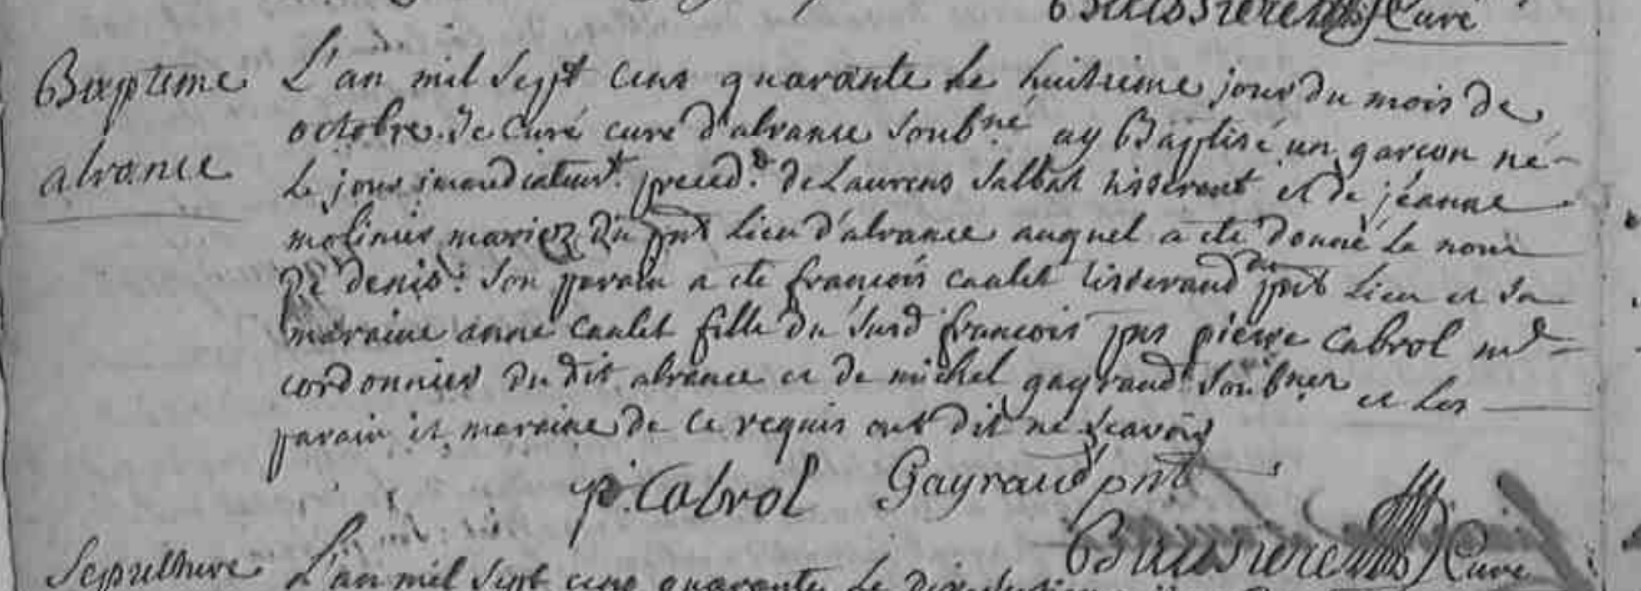 Curé
Bapteme
alrance
L'an mil sept cens quarante le huitieme jour du mois de
octobre. Je Curé curé d'alrance soubné ay Baptisé un garcon né
le jour immediatemt. preced.t de Laurens Salbat tisserant et de jeanne
molinier mariez du pnt Lieu d'alrance auquel a ete donné le nom
de denis. Son parain a ete francois caulet tisserand du pnt Lieu et sa
maraine anne caulet fille du susd francois pns pierre Cabrol md
cordonnier du dit alrance et de michel gayraud soubnez et les
parain et maraine de ce requis ont dit ne scavoir
p. Cabrol Gayraud pnt
Curé
Sepulture L'an mil sept cens quarante le